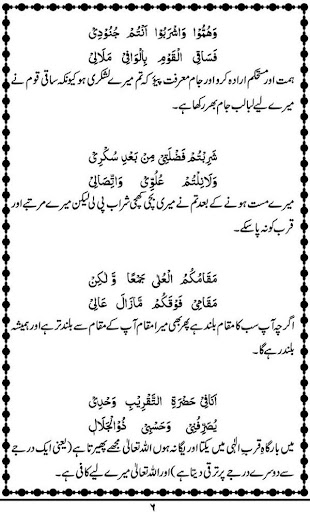 وَهُمُّوْا وَاشْرَبُوْا اَنْتُمْ جُنُوْدِیْ
فَسَاقِی الْقَوْمِ بِالْوَافِیْ مَلَالِیْ
ہمت اور مستحکم ارادہ کرو اور جام معرفت پیؤ کہ تم میرے لشکری ہو کیونکہ ساقی قوم نے
میرے لیے لبالب جام بھر رکھا ہے۔
شَرِبْتُمْ فَضْلَتِیْ مِنْ بَعْدِ سُكْرِیْ
وَلَانِلْتُمْ عُلُوِّیْ وَاتِّصَالِیْ
میرے مست ہونے کے بعد تم نے میری بچی کھچی شراب پی لی لیکن میرے مرتبے اور
قرب کو نہ پا سکے۔
مَقَامُكُمُ الْعُلٰی جَمْعًا وَّلٰكِنْ
مَقَامِیْ فَوْقَكُمْ مَّازَالَ عَالِیْ
اگرچہ آپ سب کا مقام بلند ہے پھر بھی میرا مقام آپ کے مقام سے بلند تر ہے اور ہمیشہ
بلند رہے گا۔
اَنَافِیْ حَضْرَةِ التَّقْرِیْبِ وَحْدِیْ
یُصَرِّفُنِیْ وَحَسْبِیْ ذُوالْجَلَالٖ
میں بارگاہِ قرب الٰہی میں یکتا اور یگانہ ہوں اللہ تعالیٰ مجھے پھیرتا ہے (یعنی ایک درجے
سے دوسرے درجے پر ترقی دیتا ہے) اور اللہ تعالیٰ میرے لیے کافی ہے۔
۶